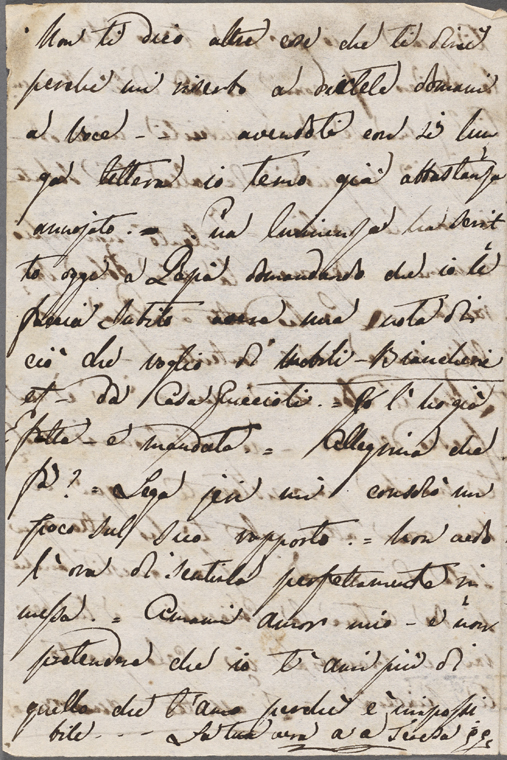 Non ti dico altre cose che ti direi
perchè mi riserbo a dirtele domani
a voce - - avendoti con sì lun
ga lettera io temo già abbastanza
annojato. = Eminenza ha scrit
to oggi a Papà domandando che io le
faccia subito una nota di
ciò che voglio di Mobili - Biancheria
et - da Casa Guiccioli. = Io l'ho già
fatta - e mandata = Allegrina che
fà? = Lega jeri mi consolò un
poco sul suo rapporto. = Non vedo
l'ora di sentirla perfettamente ri
messa. = Amami amor mio - e non
pretendere che io t'ami più di
quello che t'amo perchè è impossi
bile - - - La tua vera a a Teresa GG